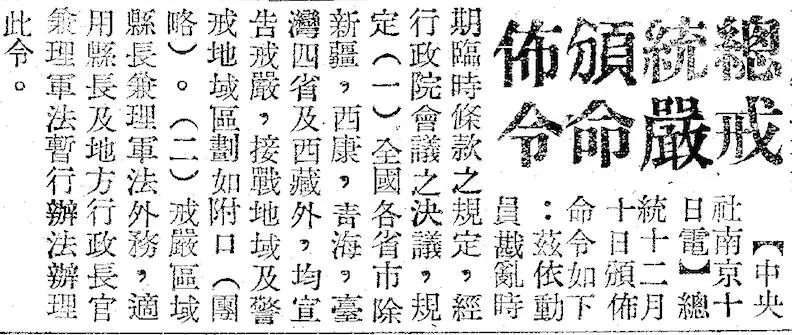 總統頒佈
戒嚴命令
【中央
社南京十
日電】總
統十二月
十日頒佈
命令如下
：茲依動
員戡亂時
期臨時條款之規定，經
行政院會議之決議，規
定（一）全國各省市除
新疆，西康，青海，臺
灣四省及西藏外，均宣
告戒嚴，接戰地域及警
戒地域區劃如附口（團
略）。（二）戒嚴區域
縣長兼理軍法外務，適
用縣長及地方行政長官
兼理軍法暫行辦法辦理
此令。